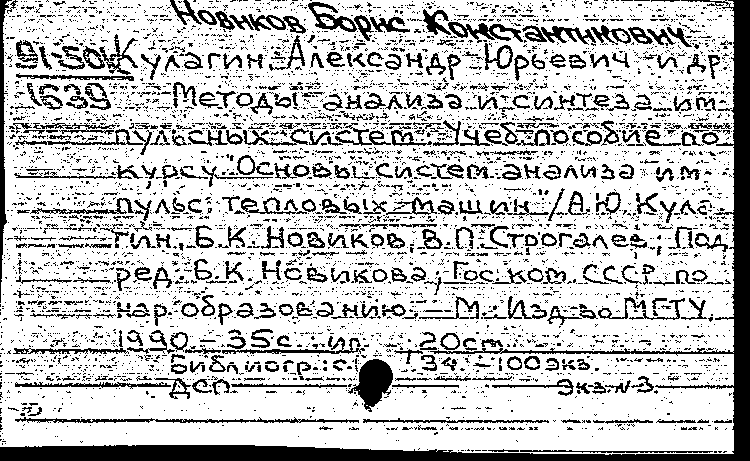 Новиков Борис Константинович
91-50
1639
Кулагин, Александр Юрьевич и др
Методы анализа и синтеза им-
пульсных систем: Учеб. пособие по
курсу "Основы систем анализа им-
пульс. тепловых машин"/А.Ю. Кула-
гин, Б.К. Новиков, В.П. Строгалев; Под
ред. Б.К. Новикова; Гос. ком. СССР по
нар. образованию. – М.: Изд-во МГТУ,
1990 – 35 с.: ил. 20 см.
Библиогр.: с. 34. – 100 экз.
ДСП
Экз. N 3.